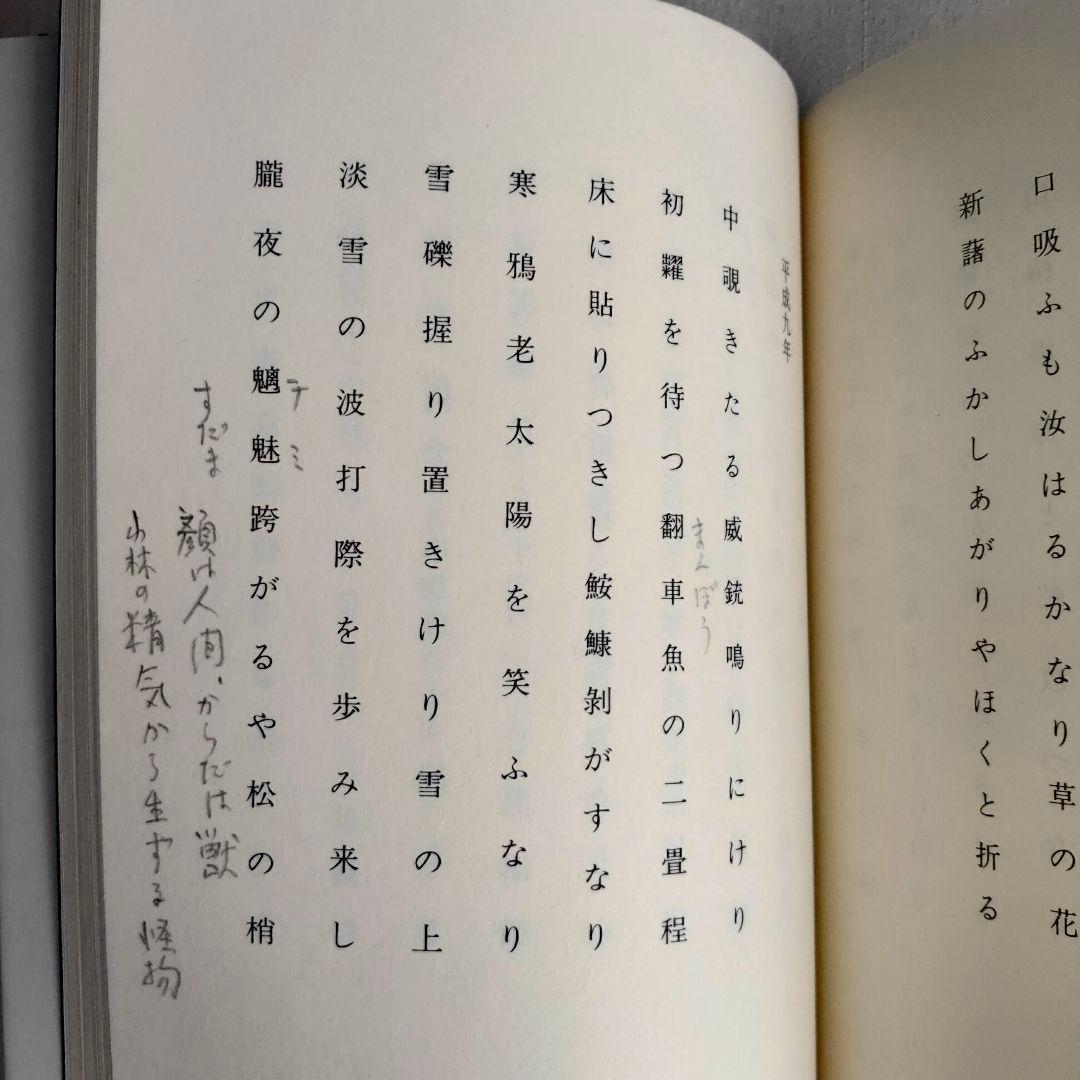 口吸ふも汝はるかなり草の花
新藷のふかしあがりやほくと折る
平成九年
中覗きたる威銃鳴りにけり
まんぼう
初糶を待つ翻車魚の二畳程
床に貼りつきし鮟鱇剝がすなり
寒鴉老太陽を笑ふなり
雪礫握り置きけり雪の上
淡雪の波打際を歩み来し
チミ
朧夜の魑魅跨がるや松の梢
すだま 顔は人間、からだは獣
山林の精気から生ずる怪物